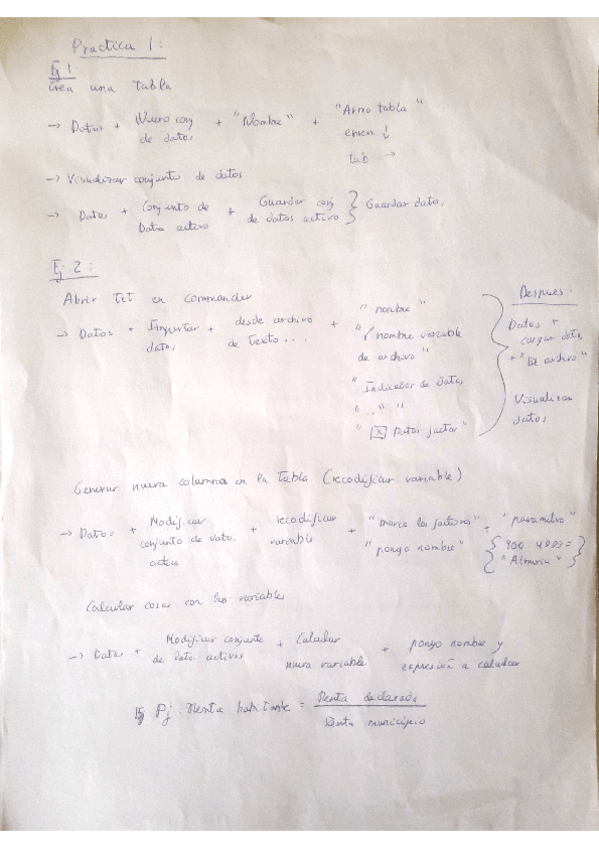 Practica 1:
Ej 1:
Crea una tabla
→ Datos + Nuevo conj de datos + "Nombre" + "Armo tabla"
↓
tab →
→ Visualizar conjunto de datos
→ Datos + Conjunto de Datos activo + Guardar conj de datos activo } Guardar dato.
Ej 2:
Abrir txt en commander
→ Datos + Importar datos + desde archivo de texto... + "nombre"
"✓ nombre variable de archivo"
"Indicador de datos
"..." "
"☒ Datos factor"
Despues:
Datos +
cargar datos
+ "El archivo"
Visualizar
datos
Generar nueva columna en la tabla (recodificar variable)
→ Datos + Modificar conjunto de dato. activo + recodificar variable + "marco los factores" "pongo nombre" + "parametro"
"Almeria"
Calcular cosas con las variables
→ Datos + Modificar conjunto de dato. activos + Calcular nueva variable + pongo nombre y expresión a calcular
Ej: Renta habitante = Renta declarada
Renta municipio